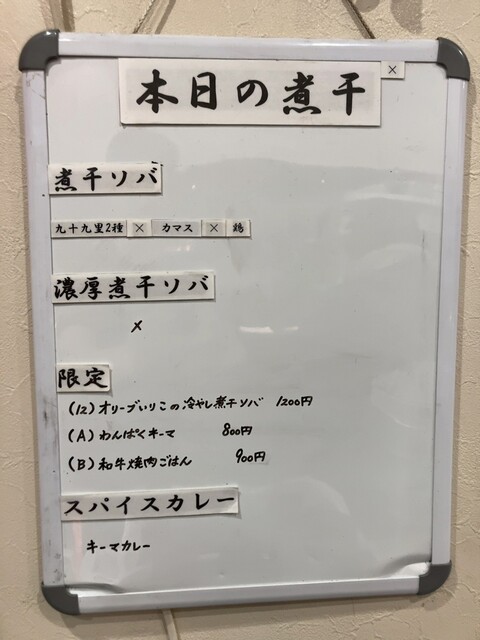 本日の煮干
×
煮干ソバ
九十九里2種 × カマス × 鶏
濃厚煮干ソバ
×
限定
(12) オリーブいりこの冷やし煮干ソバ 1200円
(A) わんぱくキーマ 800円
(B) 和牛焼肉ごはん 900円
スパイスカレー
キーマカレー